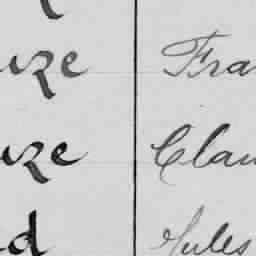 uze Fra
uze Clau
d Jules